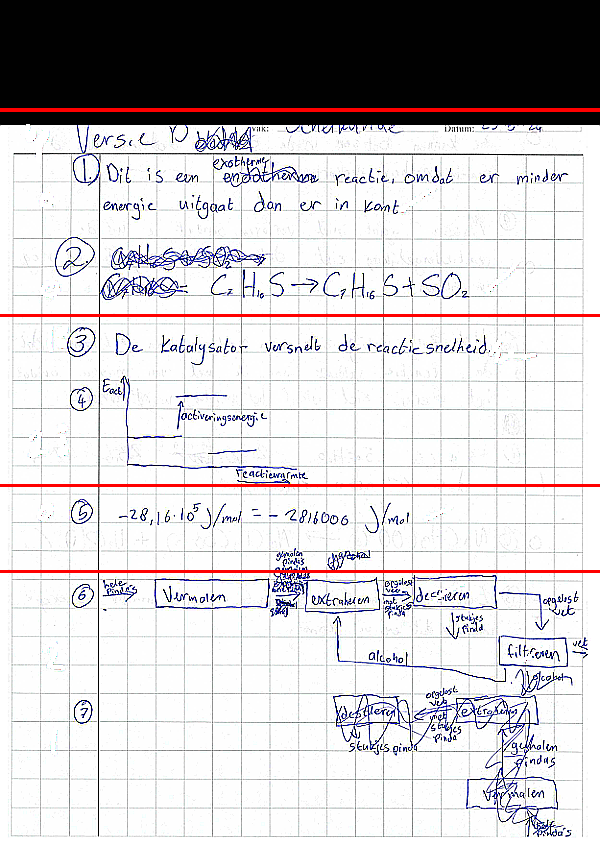 Versie D vak: Scheikunde Datum:
① Dit is een exotherme reactie, omdat er minder
energie uitgaat dan er in komt.
②
C₇H₁₆S → C₇H₁₆S + SO₂
③ De Katalysator versnelt de reactiesnelheid.
④ Eact
activeringsenergie
reactiewarmte
⑤ -28,16·10⁵ J/mol = - 2816000 J/mol
gemalen
pinda's
⑥ hele pinda's Vermalen extraheren opgelost vet met stukjes pinda destileren
opgelost vet
stukjes pinda
filtreren vet
alcohol
alcohol
⑦ destileren opgelost vet met stukjes pinda extraheren
stukjes pinda
gemalen
pindas
Vermalen
hele pinda's